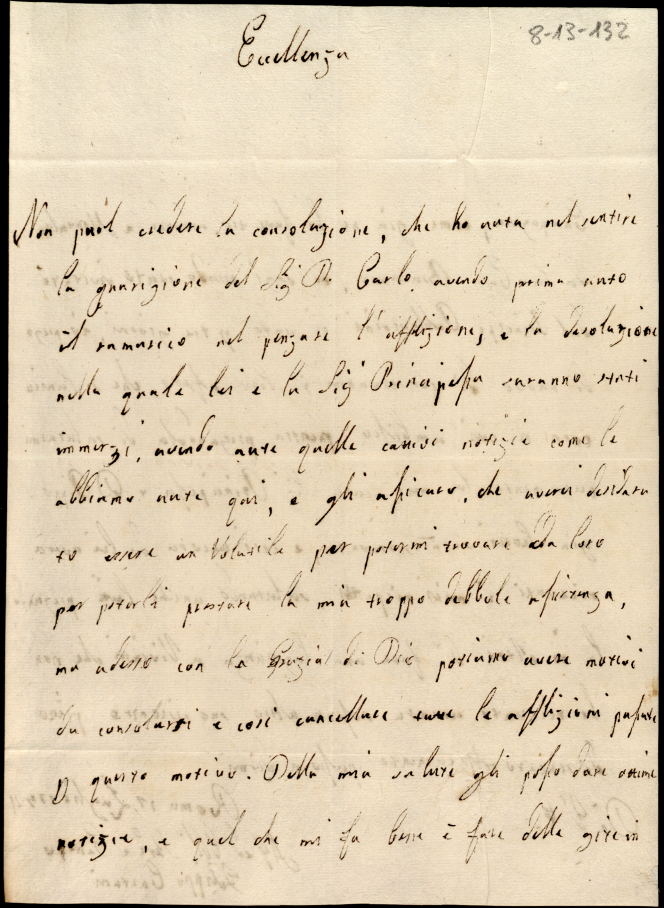 8-13-132
Eccellenza
Non può credere la consolazione, che ho auta nel sentire
la guarigione del Sig D. Carlo, avendo prima auto
il ramarico nel penzare l'afflizione, e la desolazione
nella quale lei e la Sig Principessa saranno stati
immerzi, avendo aute quelle cattivi notizie come le
abbiamo aute qui, e gli assicuro, che averei desidara
to essere un Volatile per potermi trovare da loro
per poterli prestare la mia troppo debbole assistenza,
ma adesso con la Grazia di Dio potiamo avere motivi
da consolarsi e così cancellare tutte le afflizioni passate
p questo motivo. Della mia salute gli posso dare ottime
notizie, e quel che mi fa bene è fare delle gite in